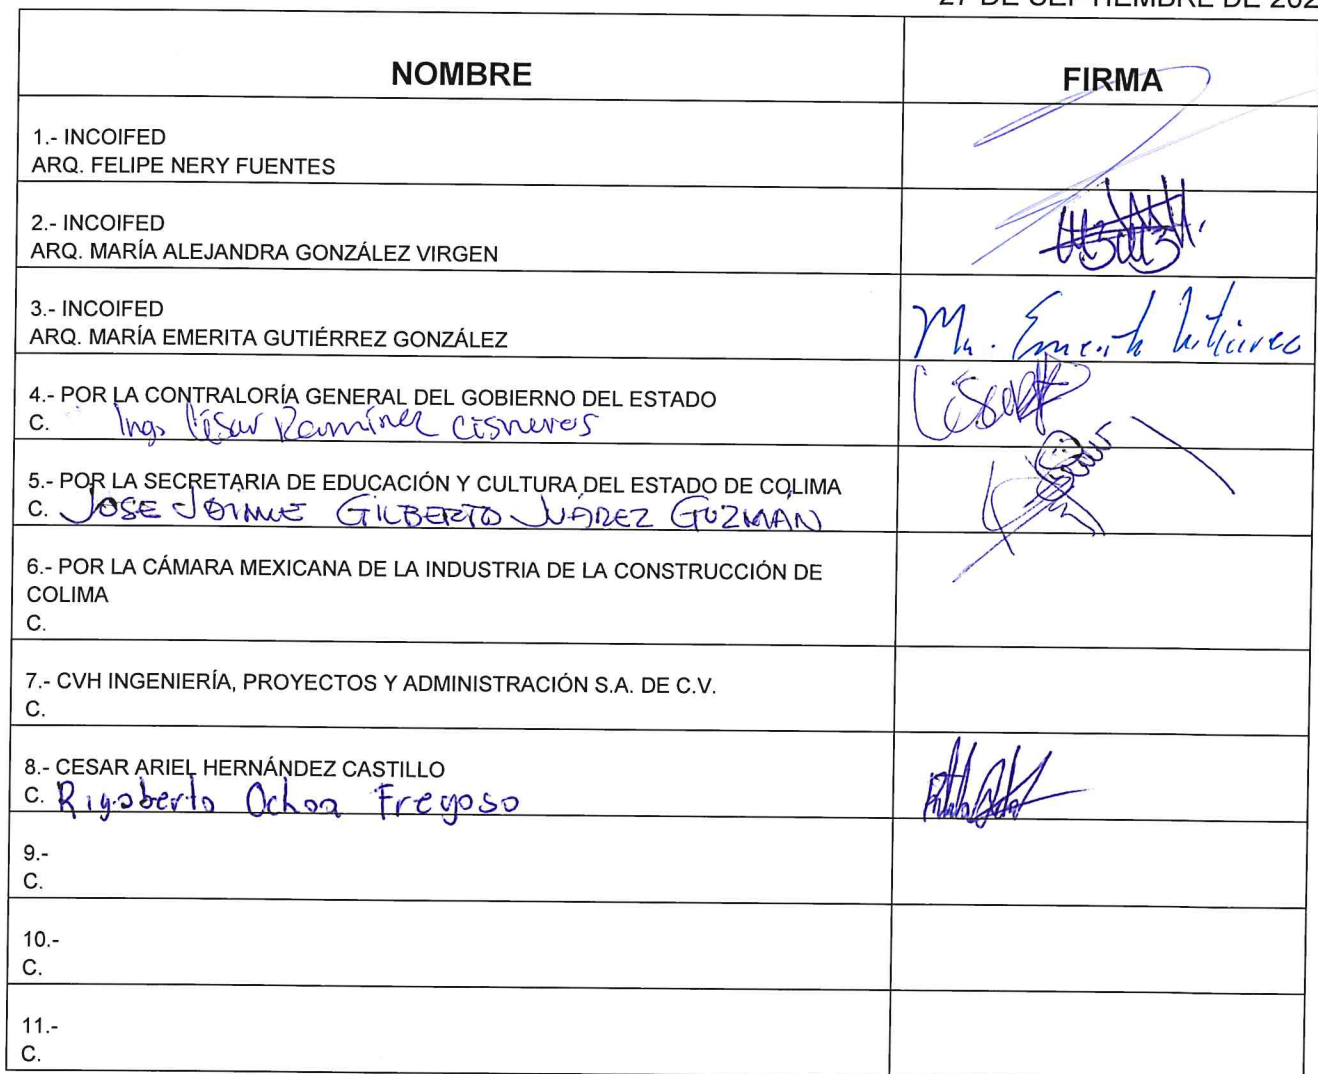 27 DE SEPTIEMBRE DE 202
NOMBRE
FIRMA
1.- INCOIFED
ARQ. FELIPE NERY FUENTES
2.- INCOIFED
ARQ. MARÍA ALEJANDRA GONZÁLEZ VIRGEN
3.- INCOIFED
ARQ. MARÍA EMERITA GUTIÉRREZ GONZÁLEZ
Ma. Emerita Gutiérrez
4.- POR LA CONTRALORÍA GENERAL DEL GOBIERNO DEL ESTADO
C. Ing. César Ramírez Cisneros
5.- POR LA SECRETARIA DE EDUCACIÓN Y CULTURA DEL ESTADO DE COLIMA
C. JOSE JAIME GILBERTO JUÁREZ GUZMÁN
6.- POR LA CÁMARA MEXICANA DE LA INDUSTRIA DE LA CONSTRUCCIÓN DE
COLIMA
C.
7.- CVH INGENIERÍA, PROYECTOS Y ADMINISTRACIÓN S.A. DE C.V.
C.
8.- CESAR ARIEL HERNÁNDEZ CASTILLO
C. Rigoberto Ochoa Fregoso
9.-
C.
10.-
C.
11.-
C.